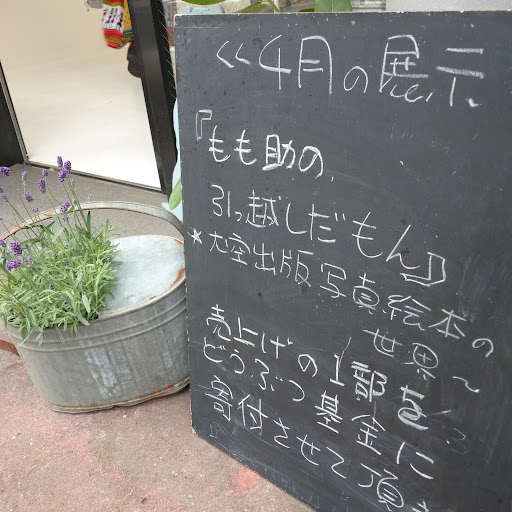 <<4月の展示
『もも助の
引っ越しだもん』
*大空出版写真絵本の
世界～
売上げの1部を
どうぶつ基金に
寄付させて頂き